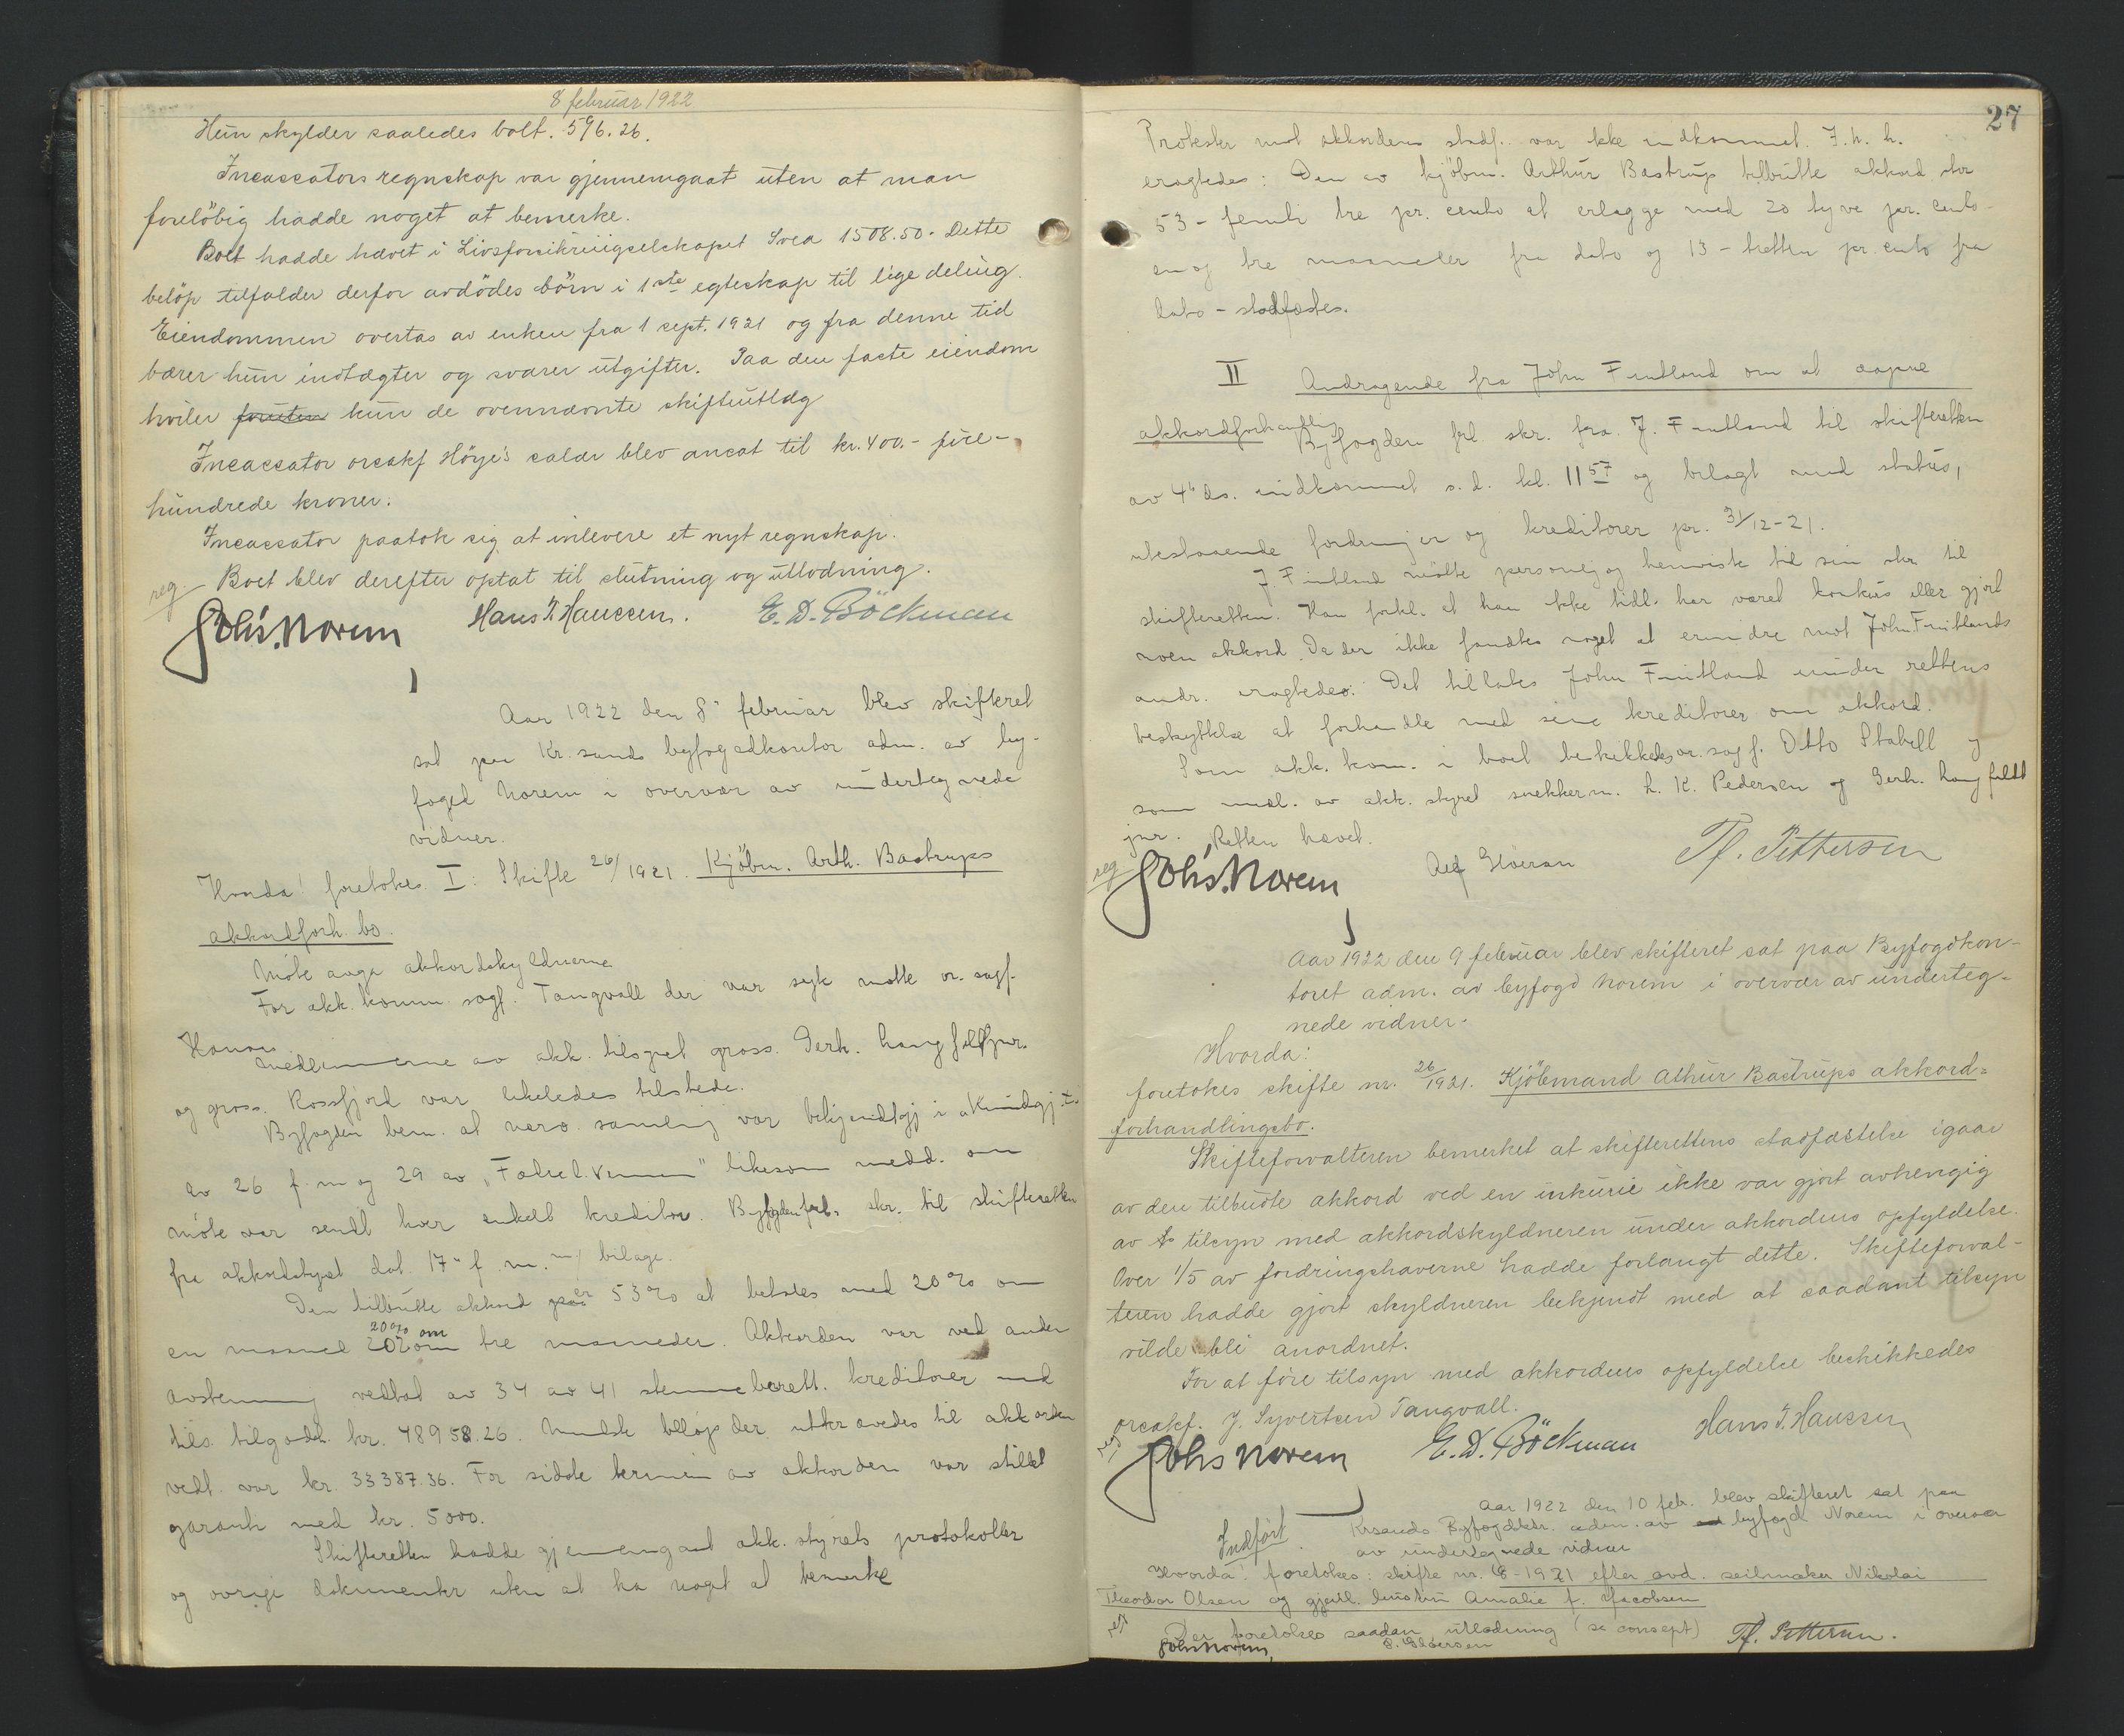 8 februar 1922
Hun skylder saaledes bolt. 596.26.
Incassators regnskap var gjennemgaat uten at man
foreløbig hadde noget at bemerke.
Boet hadde hævet i Livsforsikringselskapet Svea 1508.50. Dette
beløp tilfalder derfor avdödes börn i 1ste egteskap til lige deling.
Eiendommen overtas av enken fra 1 sept. 1921 og fra denne tid
bærer hun indtægter og svarer utgifter. Paa den faste eiendom
hviler foruten kun de ovennævnte skifteutlæg
Incassator orsakf Höye's salær blev ansat til kr. 400.- fire-
hundrede kroner.
Incassator paatok sig at inlevere et nyt regnskap.
reg. Boet blev derefter optat til slutning og utlodning.
Johs. Norem Hans T. Hanssen. E. D. Böckman
Aar 1922 den 8de februar blev skifteret
sat paa Kr.sands byfogadkontor adm. av by-
foged Norem i overvær av undertegnede
vidner.
Hvorda! foretokes I: Skifte 26/1921. Kjöbm. Arth. Bastrups
akkordforh. bo.
Möte avga akkordskyldnerne
For akk. komm. sagf. Tangvall der var syk møtte or. sagf.
Hanois
Medlemmerne av akk. tilsynet gross. Gerh. Langfeldt jnr.
og gross. Rossfjord var likeledes tilstede.
Byfogden bem. at nærv. samling var bekjendtgj i akundgj.t.
av 26 f.m og 29 av "Fædrel.vennen" likesom medd. om
möte var sendt hver enkelt kreditor. Byfogden frel. skr. til skifteretten
fra akkordstyret dat. 17de f.m. m/ bilage.
Den tilbutte akkord er 53% at betales med 20% om
en maaned 20% om tre maaneder. Akkorden var ved anden
avstemning vedtat av 34 av 41 stemmeberett. kreditorer med
tils. tilgodeh. kr. 48958.26. Mindste beløp der utkrævedes til akkorden
vedt. var kr. 33387.36. For sidste termin av akkorden var stillet
garanti med kr. 5000.
Skifteretten hadde gjennemgaat akk. styrets protokoller
og øvrige dokumenter uten at ha noget at bemerke
27
Protester mot akkordens stadf. var ikke indkommet. I. h. h.
eragtedes: Den av kjöbm. Arthur Bastrup tilbutte akkord stor
53 - femti tre pr. cento at erlægge med 20 tyve pr. cento
en og tre maaneder fra dato og 13 - tretten pr. cento fra
dato - stadfæstes.
II Andragende fra John Fintland om at aapne
akkordforhandling
Byfogden frl. skr. fra J. Fintland til skifteretten
av 4de ds. indkommet s. d. kl. 11 57 og bilagt med status,
utestaaende fordringer og kreditorer pr. 31/12-21.
J Fintland møtte personlig og henviste til sin skr til
skifteretten. Han forkl. at han ikke tidl. har været konkurs eller gjort
noen akkord. Da der ikke fandtes noget at erindre mot John Fintlands
andr. eragtedes: Det tillates John Fintland under rettens
beskyttelse at forhandle med sine kreditorer om akkord.
Som akk. kom. i boet beskikkedes or. sagf. Otto Stabell og
som medl. av akk. styret snekkerm. L. K. Pedersen og Gerh. Langfeldt
jnr. Retten hævet.
reg Johs. Norem Th. Pettersen
Aar 1922 den 9 februar blev skifteret sat paa Byfogdkon-
toret adm. av byfogd Norem i overvær av underteg-
nede vidner.
Hvorda:
foretokes skifte nr. 26/1921. Kjöbmand Athur Bastrups akkord-
forhandlingsbo.
Skifteforvalteren bemerket at skifterettens stadfæstelse igaar
av den tilbudte akkord ved en inkurie ikke var gjort avhengig
av tilsyn med akkordskyldneren under akkordens opfyldelse.
Over 1/5 av fordringshaverne hadde forlangt dette. Skifteforval-
teren hadde gjort skyldneren bekjendt med at saadant tilsyn
vilde bli anordnet.
For at före tilsyn med akkordens opfyldelse beskikkedes
orsakf. J. Syvertsen Tangvall.
reg Johs Norem E. D. Böckman Hans T. Hanssen
Aar 1922 den 10 feb. blev skifteret sat paa
Indfört. Krsands Byfogdktr. adm. av byfogd Norem i overvær
av undertegnede vidner
Hvorda! foretokes: skifte nr. 8-1921 efter avd. seilmaker Nikolai
Theodor Olsen og gjenl. hustru Amalie f. Jacobsen
reg Der foretokes saadan utlodning (se consept)
Johs Norem, Th. Pettersen.